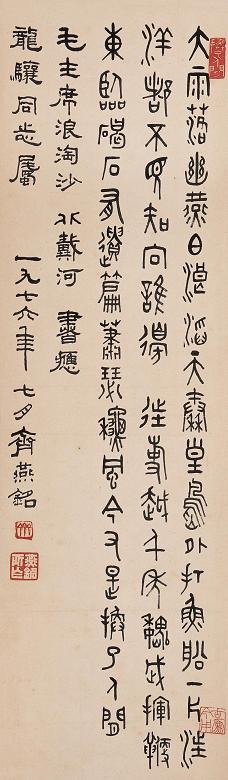 大雨落幽燕白浪滔天秦皇島外打魚船一片汪
洋都不見知向誰邊 往事越千年魏武揮鞭
東臨碣石有遺篇蕭瑟秋風今又是換了人間
毛主席浪淘沙北戴河 書應
龍驤同志屬 一九七六年七夕齊燕銘